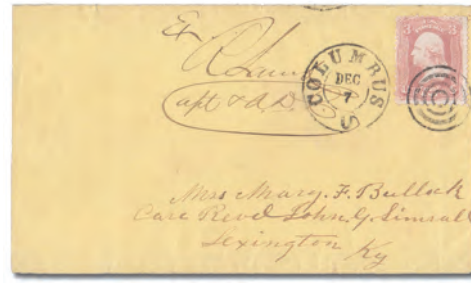 Ex
Capt & A.D.
COLUMBUS
DEC
7
3
3
Mrs Mary. F. Bullock
Care Revd John. G. Simrall
Lexington Ky